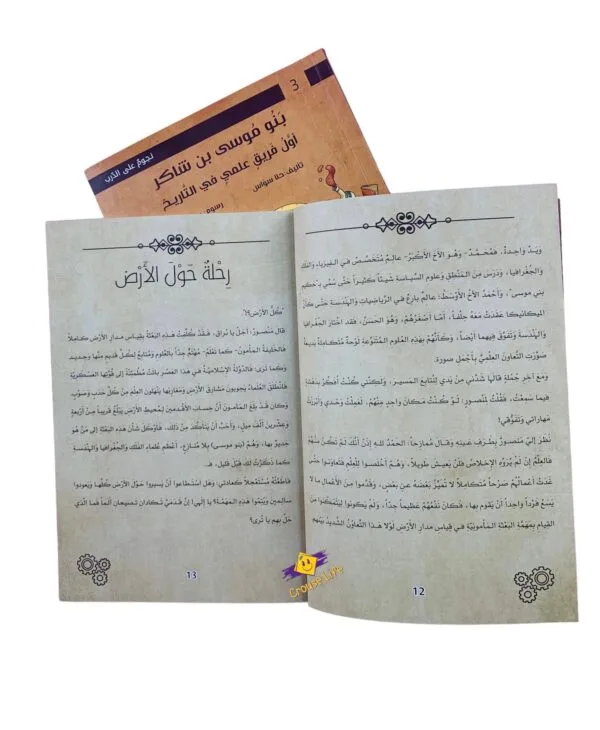 3
نجوم على الدرب
بنو موسى بن شاكر
أول فريق علمي في التاريخ
تأليف: حلا سواس
رسوم
ويد واحدة، فمحمد -وهو الأخ الأكبر- عالم متخصص في الفيزياء والفلك
والجغرافيا، ودرس من المنطق وعلوم السياسة شيئاً كثيراً حتى سمي بـ"حكيم
بني موسى"، وأحمد الأخ الأوسط: عالم بارع في الرياضيات والهندسة حتى كأن
الميكانيكا عقدت معه حلفاً، أما أصغرهم، وهو الحسن، فقد اختار الجغرافيا
والهندسة وتفوق فيهما أيضاً، وكأنهم بهذه العلوم المتنوعة لوحة متكاملة بديعة
صورت التعاون العلمي بأجمل صورة.
ومع آخر جملة قالها شدني من يدي لنتابع المسير، ولكنني كنت أفكر بدقة
فيما سمعت، فقلت لمنصور: لو كنت مكان واحد منهم، لعملت وحدي وأبرزت
مهاراتي وتفوقي!
نظر إلي منصور بطرف عينه وقال ممازحاً: الحمد لله إذن أنك لم تكن منهم
فالعلم إن لم يروه الإخلاص فلن يعيش طويلاً، وهم أخلصوا للعلم فتعاونوا حتى
غدت أعمالهم صرحاً متكاملاً لا تميز بعضه عن بعض، وقدموا من الأعمال ما لا
يسع فرداً واحداً أن يقوم بها، فكان نفعهم عظيماً جداً، ولم يكونوا ليتمكنوا من
القيام بمهمة البعثة المأمونية في قياس مدار الأرض لولا هذا التعاون الشديد بينهم
12
رحلة حول الأرض
"كل الأرض؟!".
قال منصور: أجل يا نراق، فقد كلفت هذه البعثة بقياس مدار الأرض كاملاً
فالخليفة المأمون- كما تعلم- مهتم جداً بالعلوم ومتابع لكل قديم منها وجديد
وكما ترى: فالدولة الإسلامية في هذا العصر باتت مطمئنة إلى قوتها العسكرية
فانطلق العلماء يجوبون مشارق الأرض ومغاربها ينهلون العلم من كل حدب وصوب،
وكان قد بلغ المأمون أن حساب الأقدمين لمحيط الأرض يبلغ قريباً من أربعة
وعشرين ألف ميل، وأحب أن يتأكد من ذلك، فأوكل شأن هذه البعثة إلى من هو
جدير بها، وهم (بنو موسى) بلا منازع، أعظم علماء الفلك والجغرافيا والهندسة
كما ذكرت لك قبل قليل، فـ..
فاطعته مستعجلاً كعادتي: وهل استطاعوا أن يسيروا حول الأرض كلها ويعودوا
سالمين ويتموا هذه المهمة؟ يا إلهي! إن قدمي تكادان تصيحان ألماً فما الذي
حل بهم يا ترى؟
13
Crouse Life